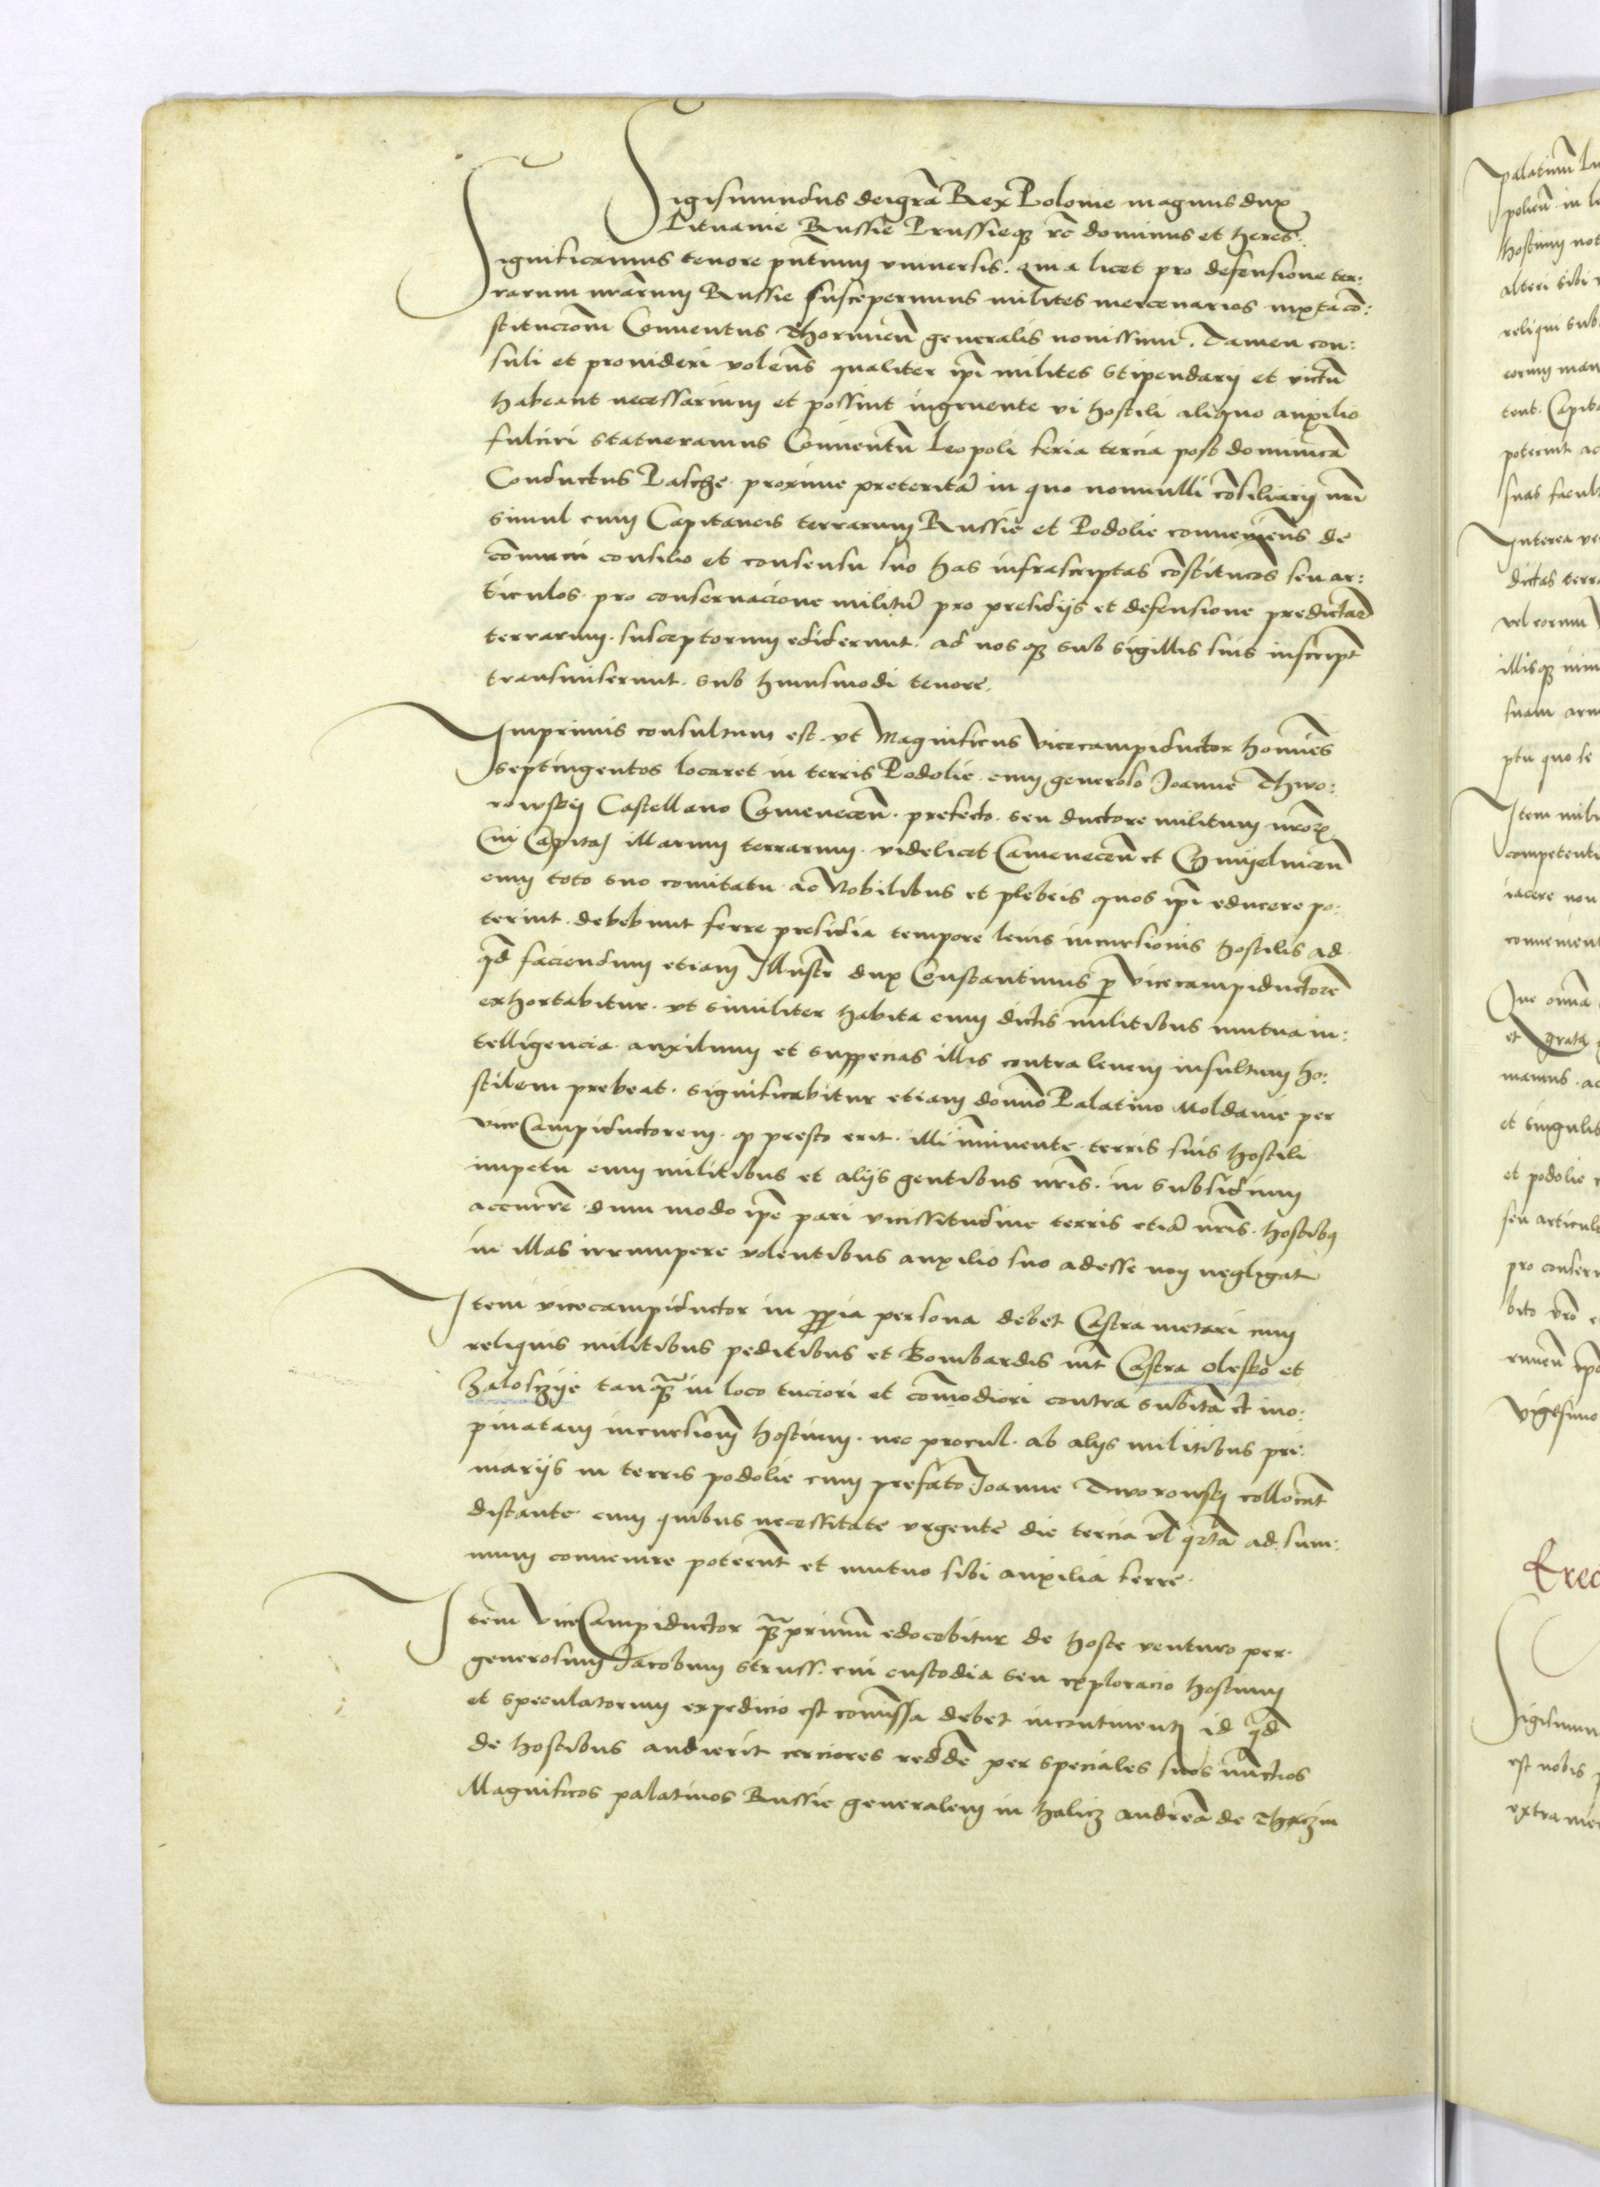 Sigismundus dei gra Rex Polonie magnus dux
Lituanie Russie Prussieq3 rc dominus et heres.
Significamus tenore pntium vniuersis. Qui a licet pro defensione ter:
rarum nrarum Russie suscepermus milites mercenarios iuxta co:
stitucionem Conuentus Thoruniens generalis nouissimi. Tamen con:
suli et prouideri volens qualiter ipi milites stipendarij et victu
habeant necessarium et possint ingruente vi hostili aliquo auxilio
fulciri statueramus Conuentu Leopoli feria tercia post dominica
Conductus Pasche proxime preterita in quo nonnulli cosiliarij nri
simul cum Capitaneis terrarum Russie et Podolie conueniens de
comuni consilio et consensu suo has infrascriptas costitucões seu ar:
ticulos pro conseruacione militu pro presidijs et defensione predictar
terrarum susceptorum ediderunt. ad nosq3 sub sigillis suis inscript
transmiserunt. sub huiusmodi tenore.
Imprimis consultum est vt Magnificus Vicecampiductor homines
septingentos locaret in terris Podolie cum generoso Joanne Thwo:
rowskij Castellano Camenecen. prefecto seu ductore militum nror
Cui Capitaj illarum terrarum videlicet Camenecen et Chmyelnicen
cum toto suo comitatu ac Nobilibus et plebeis quos ipi educere po:
terint. debebunt ferre presidia tempore leuis incursionis hostilis ad
qd faciendum etiam Illustr dux Constantinus p vicecampiductore
exhortabitur. vt similiter habita cum dictis militibus mutua in:
telligencia auxilium et suppecias illis contra leuem insultum ho:
stilem prebeat. significabitur etiam domino Palatino Moldauie per
viceCampiductorem. q presto erit illi iminente terris suis hostili
impetu cum militibus et alijs gentibus nris. in subsidium
accurre dum modo ipe pari vicissitudine terris etia nris. hostib9
in illas irrumpere volentibus auxilio suo adesse non negligat
Item vicecampiductor in ppia persona debet Castra metari cum
reliquis militibus peditibus et Bombardis int Castra Olesko et
Zaloszije tanq3 in loco tuciori et comodiori contra subita et ino:
pinatam incursionem hostium. nec procul. ab alijs militibus pri:
marijs in terris podolie cum prefato Joanne Tworowskij collocat
distante cum quibus necessitate vrgente die tercia vl qrta ad sum:
mum conuenire poterunt et mutuo sibi auxilia ferre.
Item ViceCampiductor q3primum edocebitur de hoste venturo per
generosum Jacobum Struss. cui custodia seu exploracio hostium
et speculatorum expedicio est comissa debet incontinenti id qd
de hostibus audierit cerciores redde per speciales suos nuncios
Magnificos palatinos Russie generalem in Halicz Andrea de Thaczin